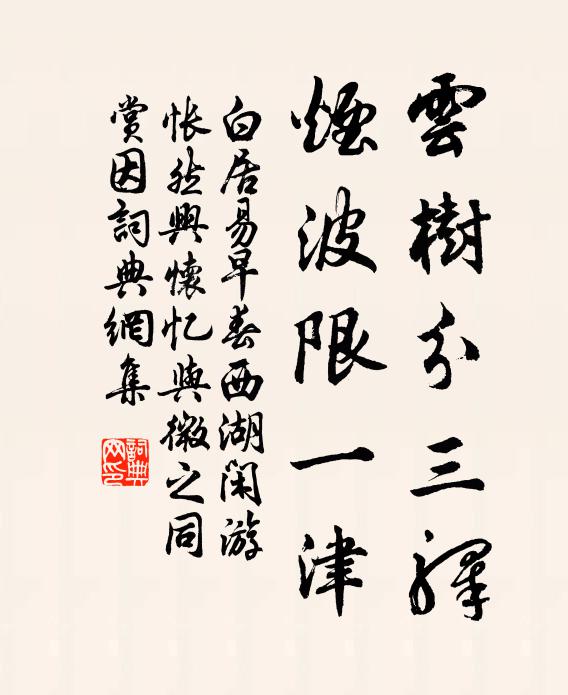 雲樹分三驛
煙波限一津
白居易早春西湖闲游
悵然興懷忆與微之同
賞因詞典網集
詞典网印